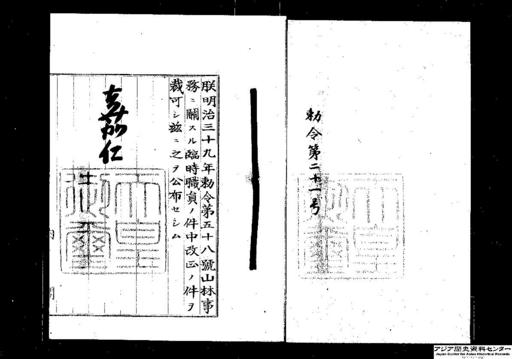 勅令第二十一号
朕明治三十九年勅令第五十八號山林事
務ニ關スル臨時職員ノ件中改正ノ件ヲ
裁可シ茲ニ之ヲ公布セシム
嘉仁
天皇
御璽
内閣
アジア歴史資料センター
Japan Center for Asian Historical Records